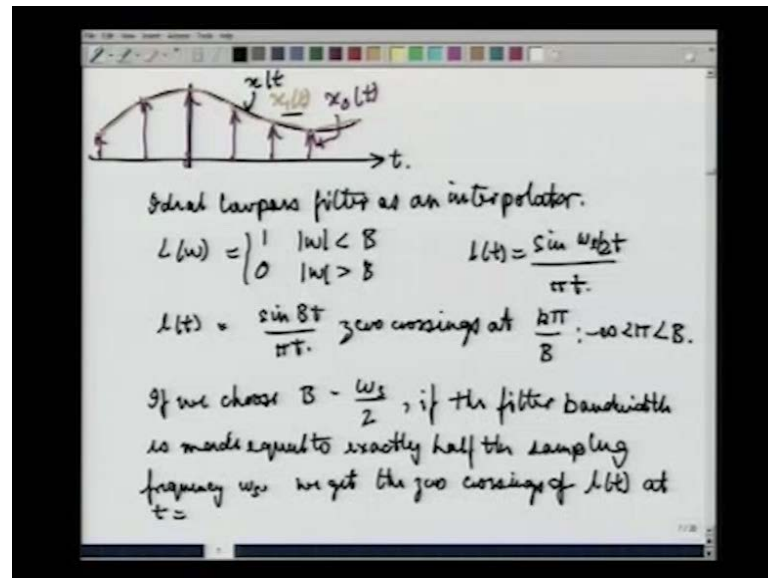 x(t
x₁(t) x₀(t)
t.
Ideal Lowpass filter as an interpolator.
L(ω) = { 1 |ω| < B l(t) = sin ωs/2t / πt.
0 |ω| > B
l(t) = sin Bt / πt. zero crossings at kπ / B
If we choose B - ωs/2, if the filter bandwidth
is made equal to exactly half the sampling
frequency ωs, we get the zero crossings of l(t) at
t =